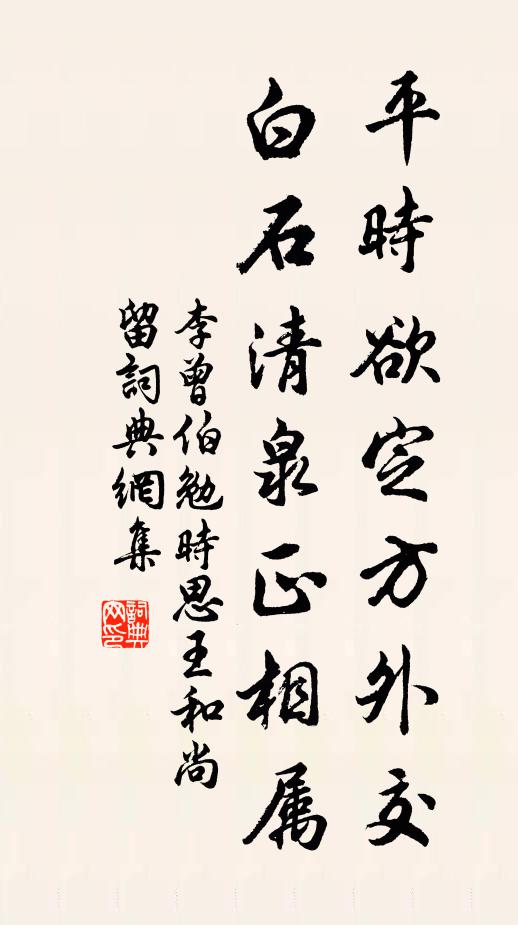 平時欲定方外交
白石清泉正相属
李曾伯勉時思王和尚
留詞典網集
詞典網印